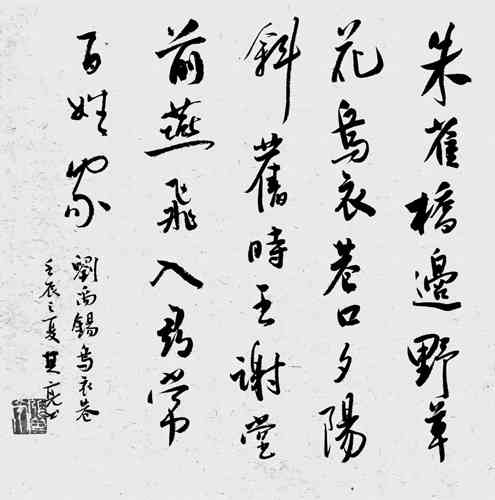 朱雀橋邊野草
花烏衣巷口夕陽
斜舊時王謝堂
前燕飛入尋常
百姓家
劉禹錫烏衣巷
壬辰之夏其亮